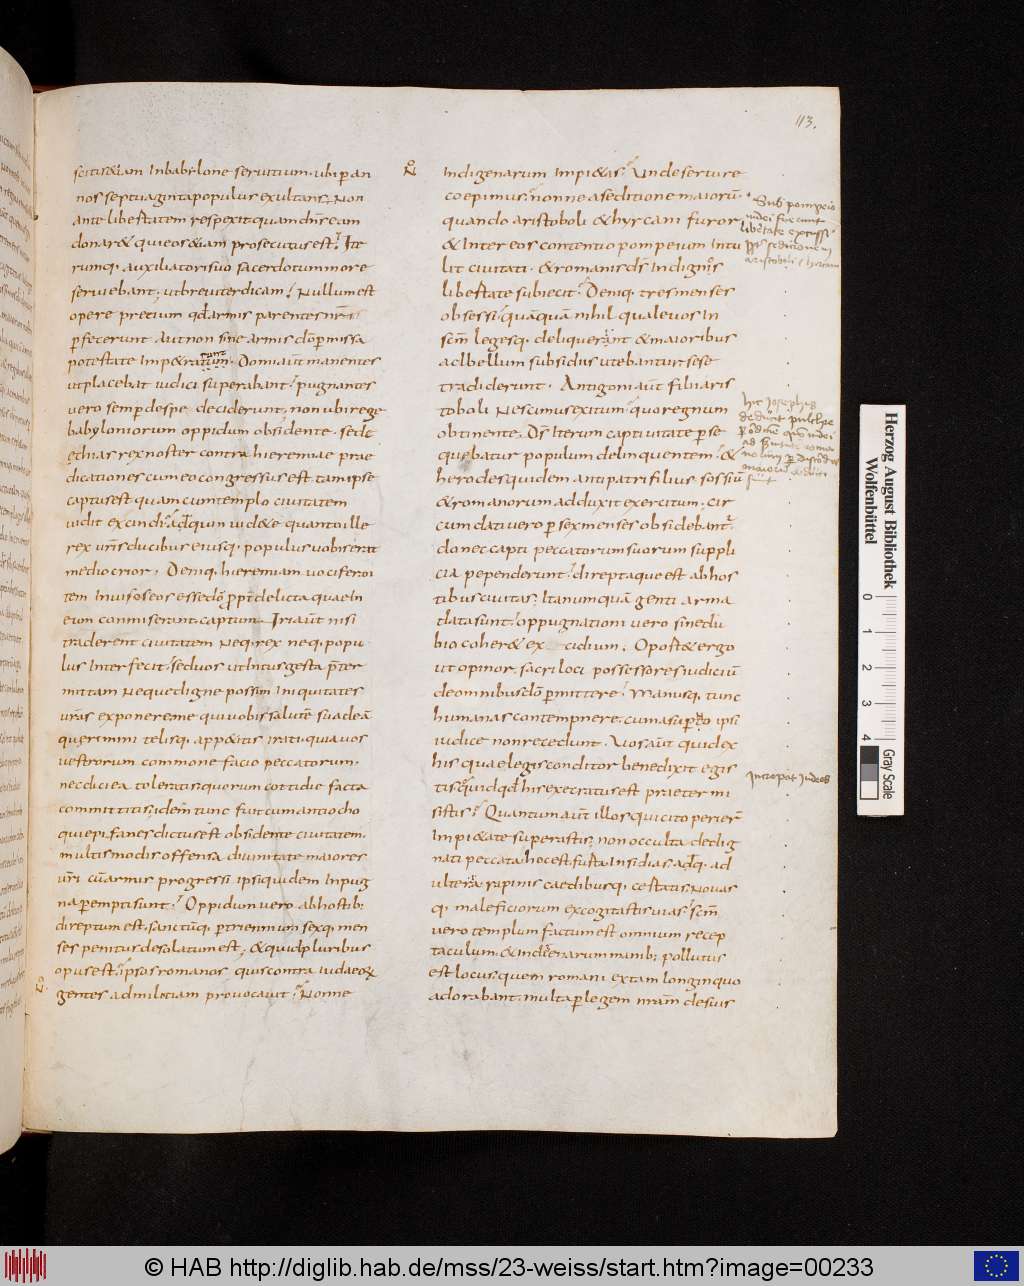 113.
scitis & iam In babylone seruitium. ubi p an
nos septuaginta populus exultans. Non
ante libertatem respexit quam dnr eam
donar& qui eos &iam prosecutus est. Ite
rumq. auxiliatori suo sacerdotum more
seruiebant; ut breuiter dicam. Nullum est
opere pretium qd armis parentes nri
pfecerunt. Aut non sine armis do pmissa
potestate Imp&ratum. Domi aut manentes
ut placebat iudici superabant. pugnantes
uero semp de spe deciderunt. non ubi rege
babyloniorum oppidum obsidente. sede
chias rex noster contra hieremiae prae
dicationes cum eo congressus est. tam ipse
captus est quam cum templo ciuitatem
uidit excindi. ad quin uid&e quanto ille
rex uris ducibus eiusq. populus uobis erat
mediocrior. Deniq. hieremiam uociferan
tem Inuisos eos esse do ppt delicta quae In
eum conmiserant. captum. Iri aut nisi
traderent ciuitatem Neq rex neq. popu
lus Interfecit. sed uos ut Intus gesta pter
mittam Neque digne possim Iniquitates
uras exponere me qui uobis salute suadea
querimini telisq. app&itis irati. quia uos
uestrorum commone facio peccatorum.
nec dici ea toleratis quorum cottidie facta
committitis; idem tunc fuit cum antiocho
qui epifanes dictus est obsidente ciuitatem.
multis modis offensa diuinitate maiores
uri cu armis progressi. ipsi quidem In pug
na pempti sunt. Oppidum uero ab hostib;
direptum est. sanctuq. p triennium sexq. men
ses penitus desolatum est; & quid pluribus
opus est. ipsos romanos quis contra iudaeorum
gentes ad militiam prouocauit. Nonne
Indigenarum Impi&as. Unde seruire
coepimus. nonne a seditione maioru
quando aristoboli & hyrcani furor
& Inter eos contentio pompeium Intu
lit ciuitati. & romanis ds Indignos
libertate subiecit. Deniq. tres menses
obsessi. quaqua nihil quale uos In
scm legesq. deliquerant & maioribus
ad bellum subsidiis utebantur. se se
tradiderunt. Antigoni aut filii aris
toboli Nescimus exitum. quo regnum
obtinente. Ds Iterum captiuitate p se
quebatur populum delinquentem. &
herodes quidem antipatri filius sossiu
& romanorum adduxit exercitum. cir
cumdati uero p sex menses obsidebant.
donec capti peccatorum suorum suppli
cia pependerunt. direptaque est ab hos
tibus ciuitas. Ita nunqua genti arma
data sunt. oppugnationi uero sine du
bio coher& ex cidium. Oport& ergo
ut opinor. sacri loci possessores iudiciu
de omnibus do pmittere. Manusq. tunc
humanas contempnere. cum a supdo ipsi
iudice non recedunt. Uos aut quid ex
his quae legis conditor benedixit egis
tis. quid qd his execratus est praetermi
sistis. Quantum aut illos qui cito perier
Impi&ate superastis. non occulta dedig
nati peccata. hoc est. furta Insidias. adq. ad
ulteria. rapinis caedibusq. certatis. Nouas
q. maleficiorum excogitastis uias. scm
uero templum factum est omnium recep
taculum. & Indigenarum manib; pollutus
est locus. quem romani ex tam longinquo
adorabant. multa p legem nram de suis
Sub pompeio
iudei fuerunt
libertate excussi
ppt seditionem
aristoboli & hyrcani
hic Josephus
deducit pulchre
Increpat Iudeos
Herzog August Bibliothek
Wolfenbüttel
0 1 2 3 4
Gray Scale
© HAB http://diglib.hab.de/mss/23-weiss/start.htm?image=00233